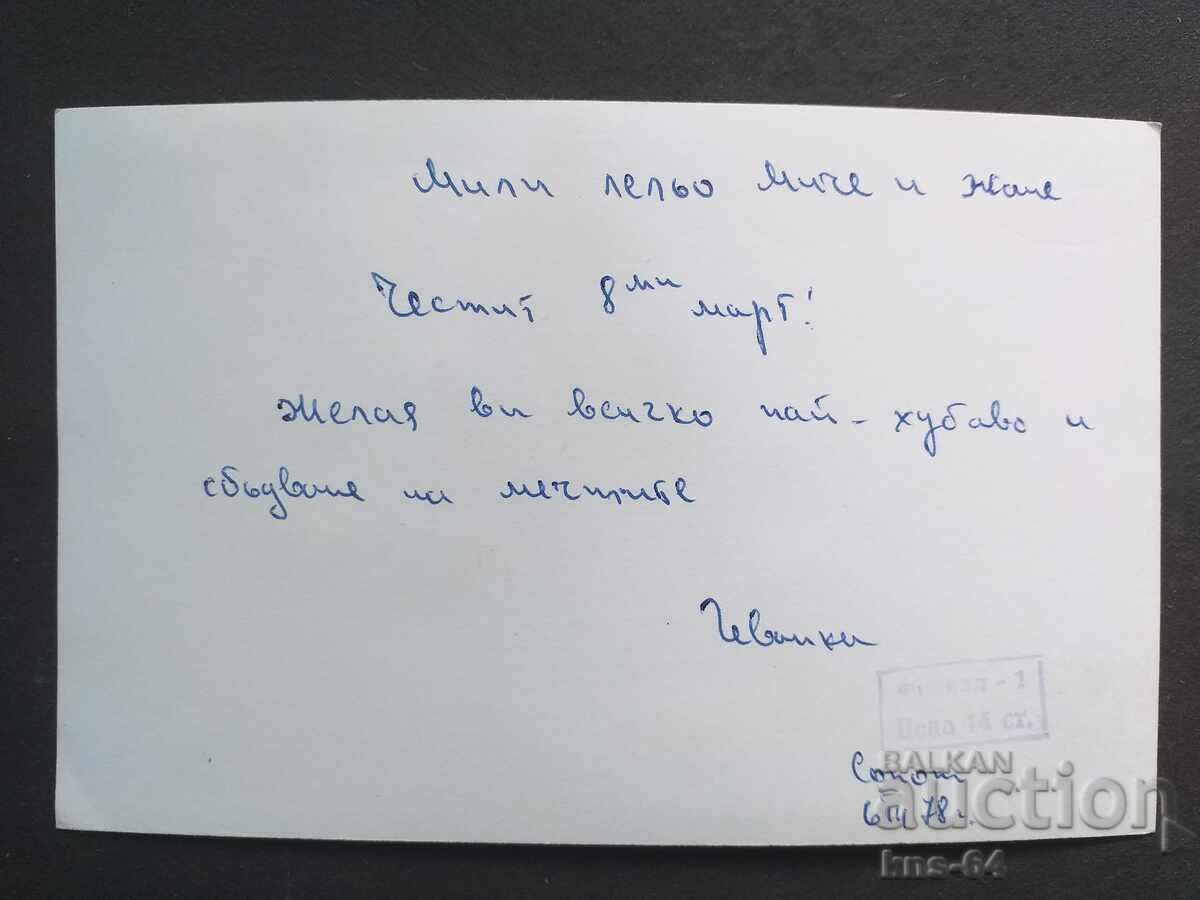 Мили лельо Миче и Жане
Честит 8ми март!
Желая ви всичко най-хубаво и
сбъдване на мечтите
Иванка
Цена 14 ст.
Сопот
6 III 78 г.
BALKAN
auction
kns-64